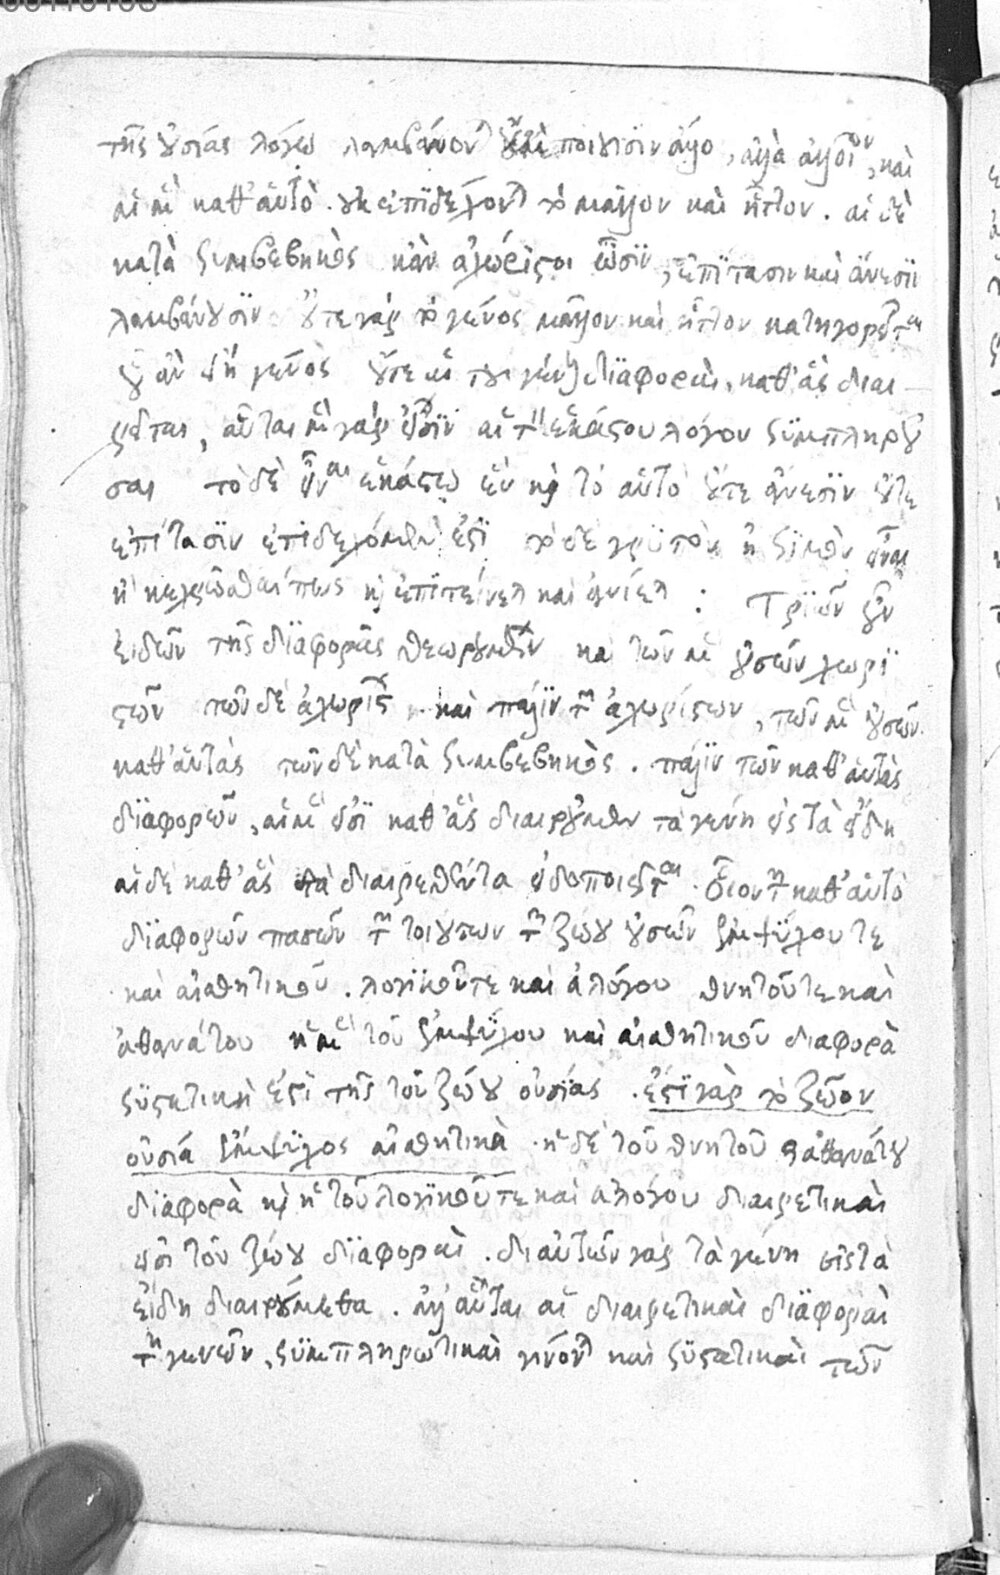 τῆς οὐσίας λόγω λαμβάνονται οὐδὲ ποιοῦσιν ἄλλο, ἀλλὰ ἀλλοῖον, καὶ
αἱ μὲν καθ' αὑτὸ οὐκ ἐπιδέχονται τὸ μᾶλλον καὶ ἧττον. αἱ δὲ
κατὰ συμβεβηκὸς κἂν ἀχώριστοι ὦσιν, ἐπίτασιν καὶ ἄνεσιν
λαμβάνουσιν οὔτε γὰρ τὸ γένος μᾶλλον καὶ ἧττον κατηγορεῖται
οὗ ἂν ᾖ γένος οὔτε αἱ τοῦ γένους διαφοραὶ, καθ' ἃς διαι
ρεῖται, αὗται μὲν γάρ εἰσιν αἱ τὸν ἑκάστου λόγον συμπληροῦ
σαι τὸ δὲ εἶναι ἑκάστω ἓν καὶ τὸ αὐτὸ οὔτε ἄνεσιν οὔτε
ἐπίτασιν ἐπιδεχόμενον ἐστὶ τὸ δὲ γρυπὸν ἢ σιμὸν εἶναι
ἢ κεχρῶσθαί πως καὶ ἐπιτείνεται καὶ ἀνίεται : Τριῶν οὖν
εἰδῶν τῆς διαφορᾶς θεωρουμένων καὶ τῶν μὲν οὐσῶν χωρι
στῶν τῶν δὲ ἀχωρίστων καὶ πάλιν τῶν ἀχωρίστων, τῶν μὲν οὐσῶν
καθ' αὑτὰς τῶν δὲ κατὰ συμβεβηκὸς. πάλιν τῶν καθ' αὑτὰς
διαφορῶν, αἱ μέν εἰσι καθ' ἃς διαιρούμεθα τὰ γένη εἰς τὰ εἴδη
αἱ δὲ καθ' ἃς τὰ διαιρεθέντα εἰδοποιεῖται. οἷον τῶν καθ' αὑτὸ
διαφορῶν πασῶν τῶν τοιούτων τῶν ζώου οὐσῶν ἐμψύχου τε
καὶ αἰσθητικοῦ. λογικοῦ τε καὶ ἀλόγου θνητοῦ τε καὶ
ἀθανάτου ἡ μὲν τοῦ ἐμψύχου καὶ αἰσθητικοῦ διαφορὰ
συστατική ἐστι τῆς τοῦ ζώου οὐσίας. ἔστι γὰρ τὸ ζῶον
οὐσία ἔμψυχος αἰσθητικὴ. ἡ δὲ τοῦ θνητοῦ καὶ ἀθανάτου
διαφορὰ καὶ ἡ τοῦ λογικοῦ τε καὶ ἀλόγου διαιρετικαὶ
εἰσι τοῦ ζώου διαφοραὶ. δι αὐτῶν γὰρ τὰ γένη εἰς τὰ
εἴδη διαιρούμεθα. ἀλλ' αὗται αἱ διαιρετικαὶ διαφοραὶ
τῶν γενῶν, συμπληρωτικαὶ γίνονται καὶ συστατικαὶ τῶν